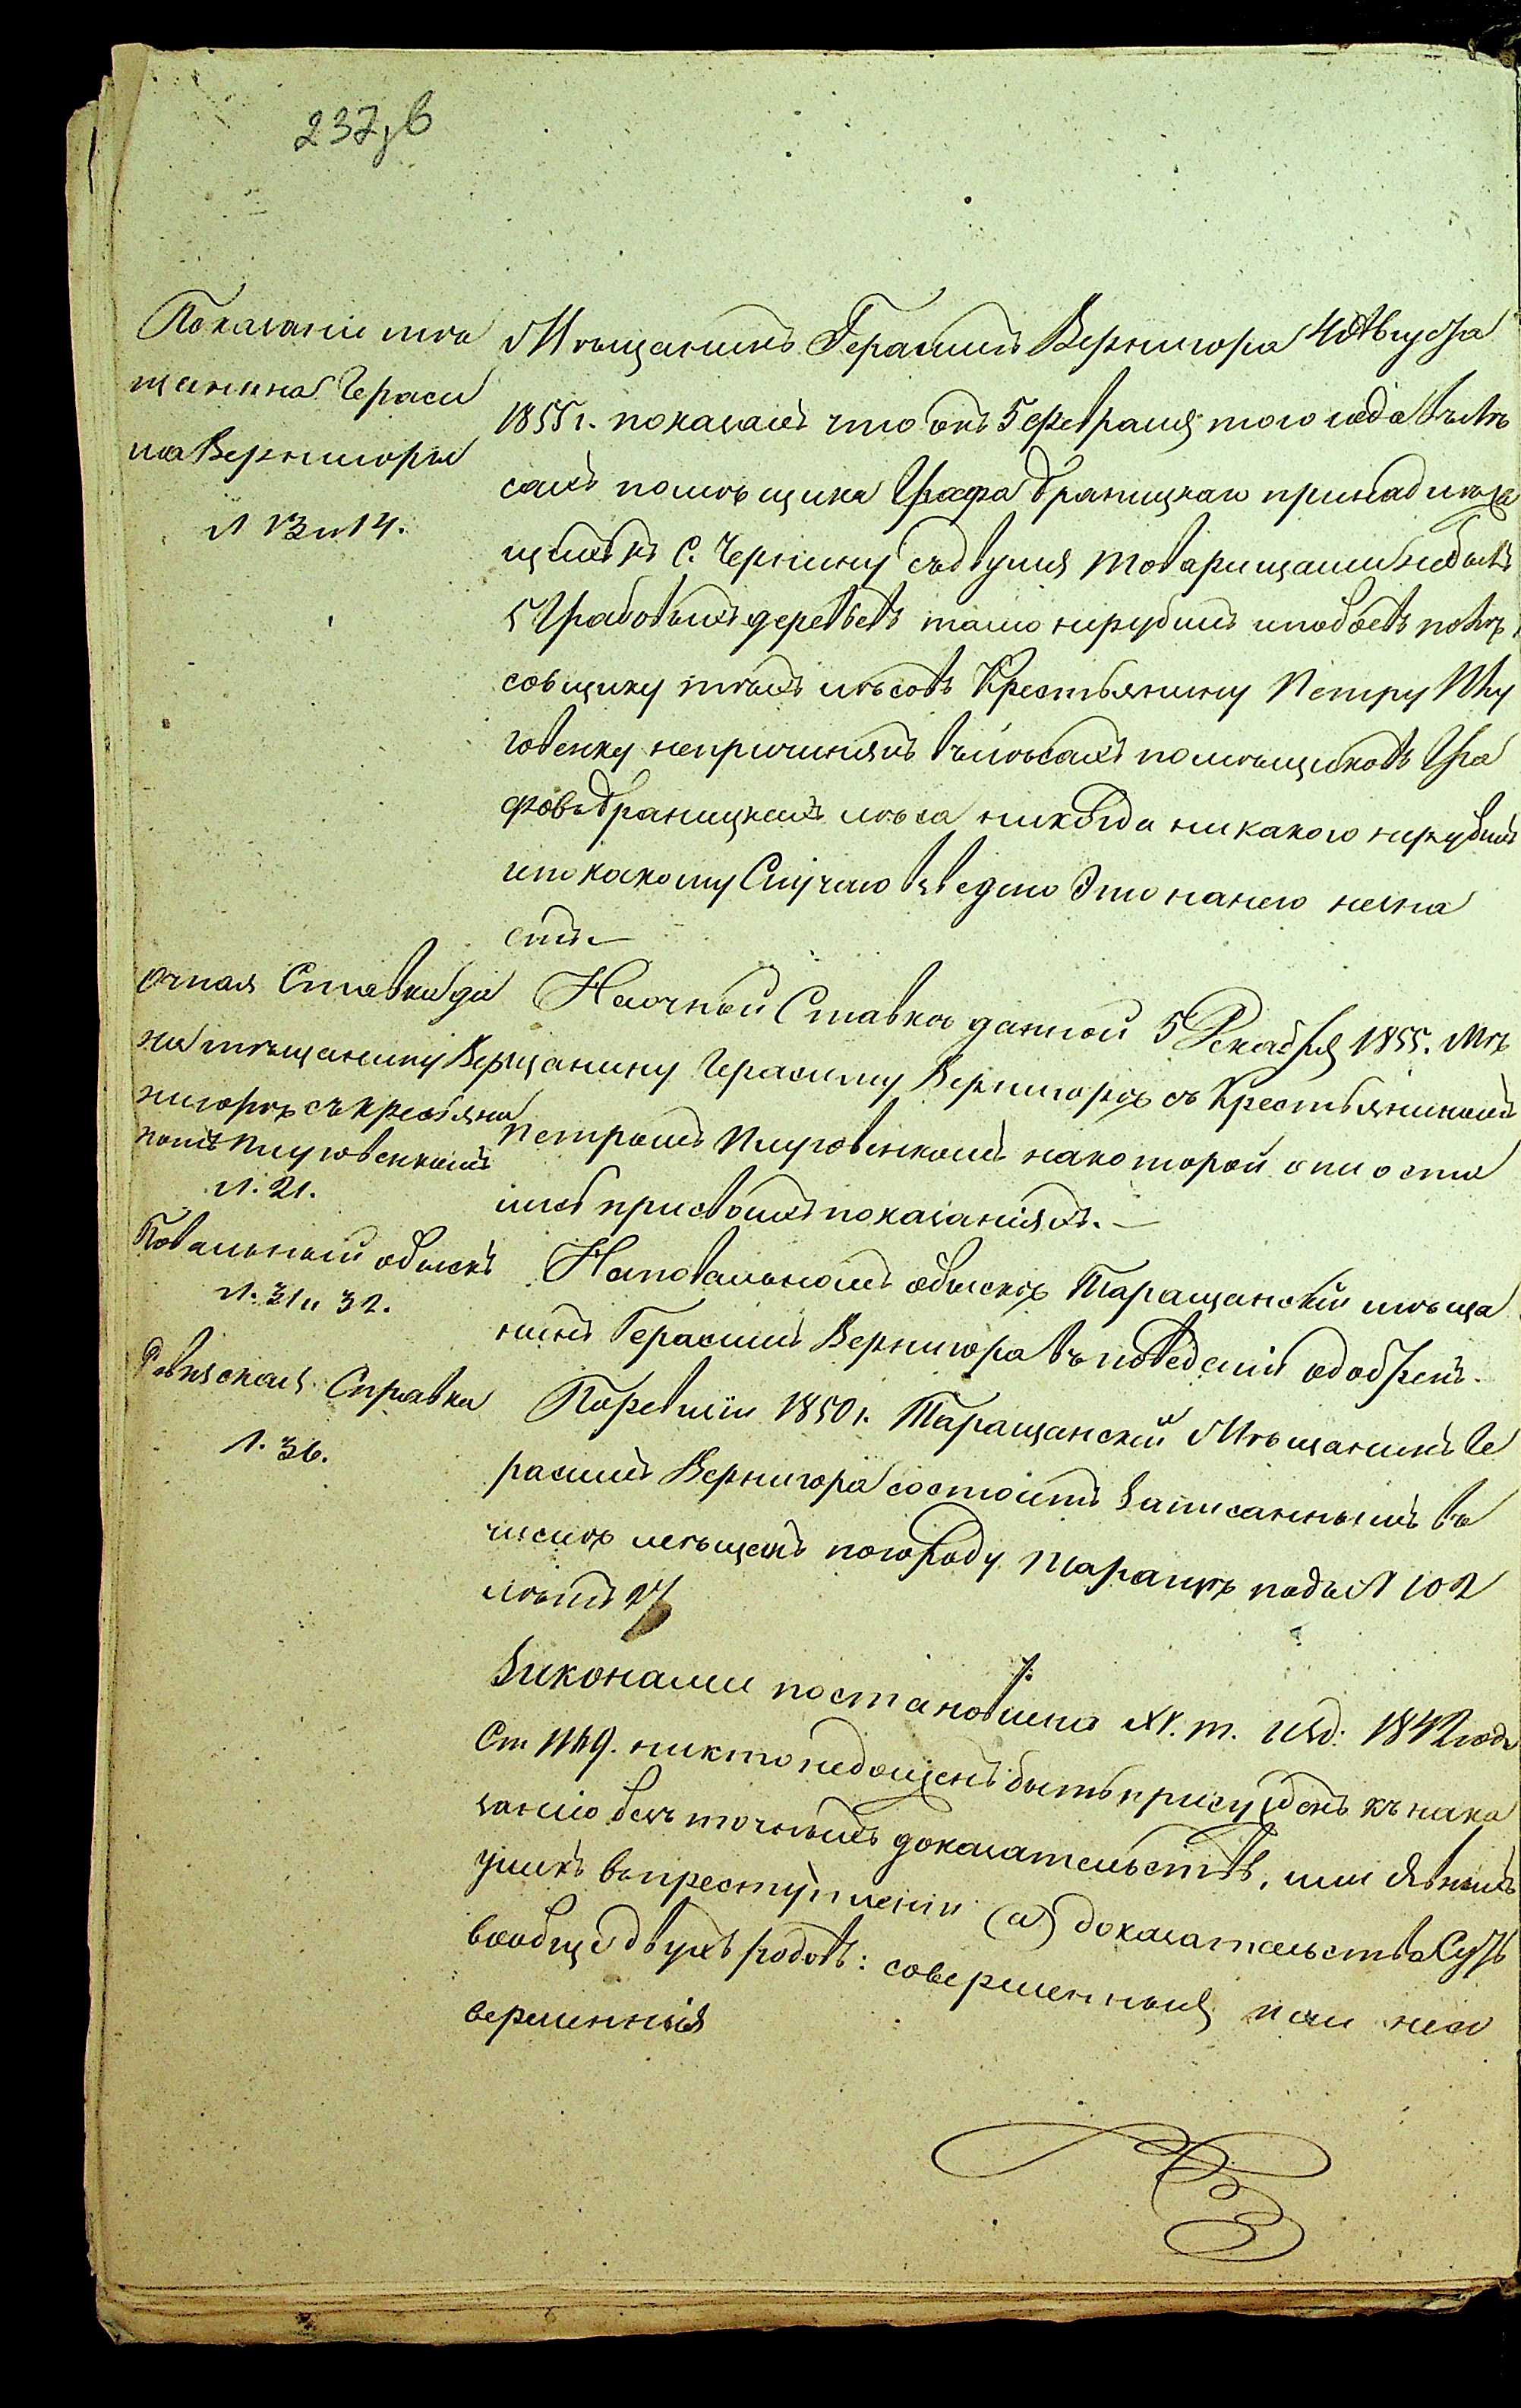 237, в
Показаніе мѣ
щанина Гераси
ма Вернигоры
л 13 и 14.
Мѣщанинъ Герасимъ Вернигора 4 Августа
1855 г. показалъ что онъ 5 февраля того года въ лѣ
сахъ помѣщика Графа Браницкаго принадлежа
щихъ къ С. Чернину съ двумя товарищами небылъ
5 Грабовыхъ деревьевъ тамо нерубилъ и побоевъ по лѣ
совщику тѣхъ лѣсовъ Крестьянину Петру Плу
говенку непричинялъ въ лѣсахъ помѣщиковъ Гра
фовъ Браницкихъ лѣса никогда никакого нерубилъ
и по какому Случаю взведено Это нанего незна
етъ.—
Очная Ставка да
на мѣщанину Вер
нигорѣ съ крестьяни
номъ Плуговенкомъ
л. 21.
На очной Ставкѣ данной 5 Декабря 1855. Мѣ
щанину Герасиму Вернигорѣ съ Крестьяниномъ
Петромъ Плуговенкомъ на которой они оста
лись присвоихъ показаніяхъ.—
Повальный обыскъ
л. 31 и 32.
На повальномъ обыскѣ Таращанскій мѣща
нинъ Герасимъ Вернигора въ поведеніи одобренъ.
Ревизская Справка
л. 36.
По ревизіи 1850 г. Таращанскій Мѣщанинъ Ге
расимъ Вернигора состоитъ Записаннымъ въ
числѣ мѣщанъ по городу Таращѣ подъ N 102
лѣтъ 27
Законами постановлено XV. т. изд: 1842 года
Ст 1169. никто недолженъ быть присужденъ къ нака
занію безъ точныхъ доказательствъ, или явныхъ
уликъ въ преступленіи (а) доказательства Суть
вообще двухъ родовъ: совершенныя или несо
вершенныя